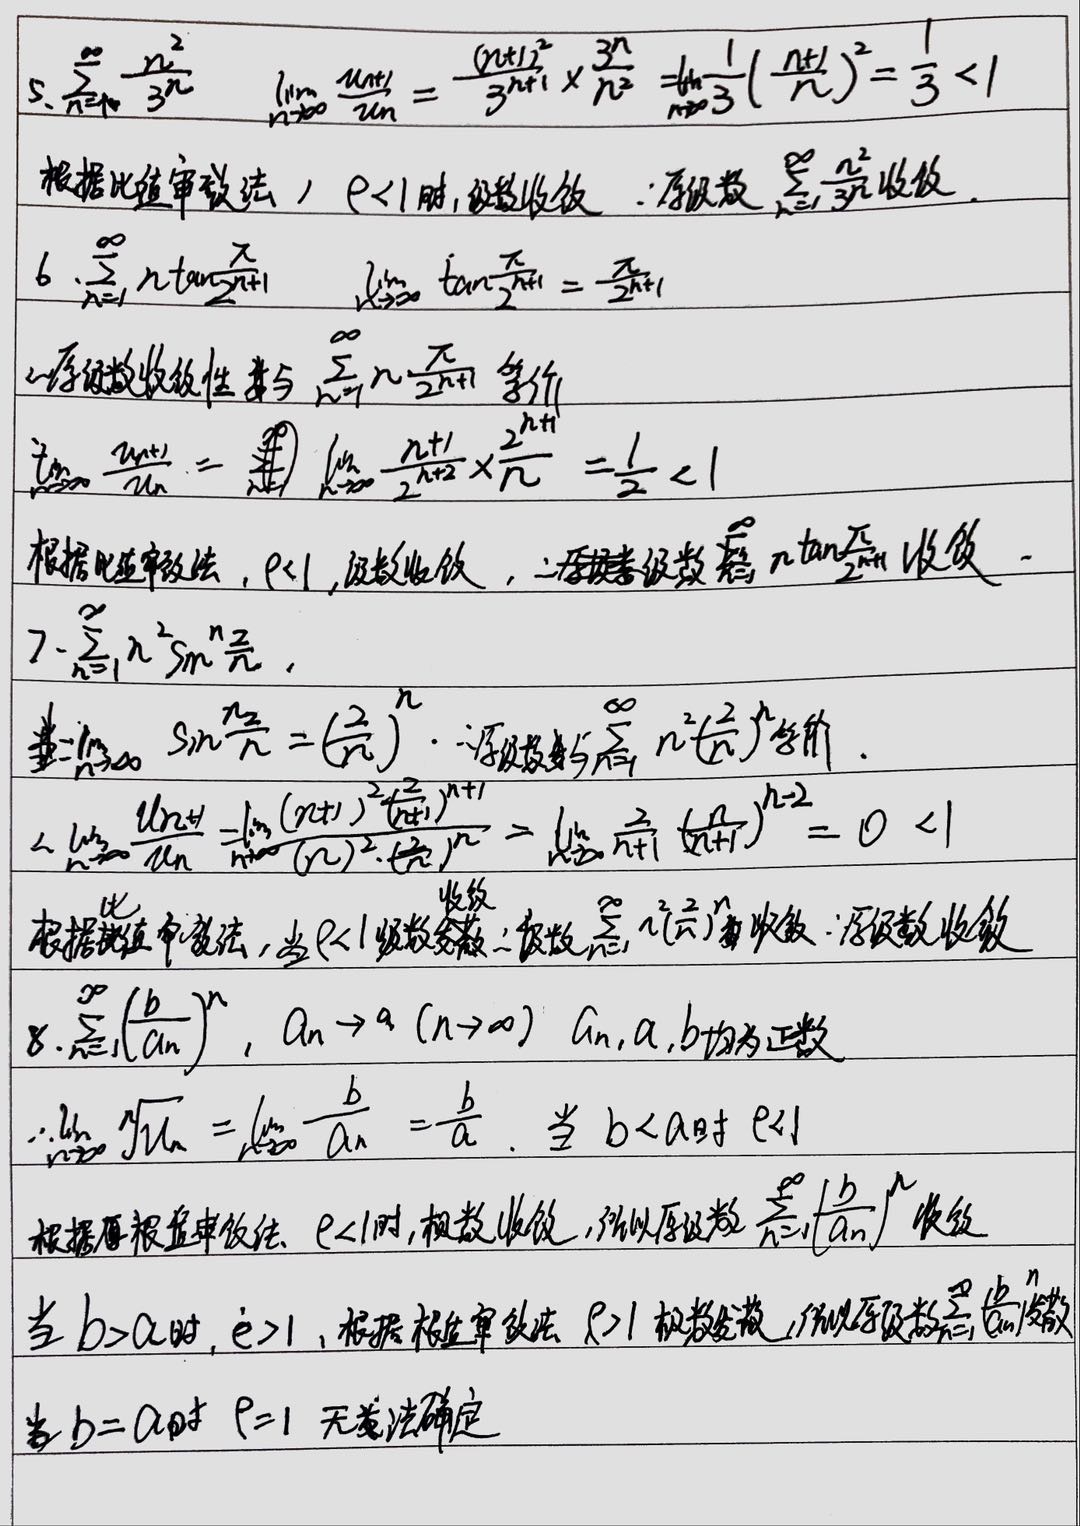 5. ∑_{n=1}^∞ n²/3ⁿ  lim_{n→∞} u_{n+1}/u_n = (n+1)²/3^{n+1} × 3ⁿ/n² = lim_{n→∞} 1/3 ((n+1)/n)² = 1/3 < 1
根据比值审敛法, ρ<1时,级数收敛 ∴原级数 ∑_{n=1}^∞ n²/3ⁿ 收敛.
6. ∑_{n=1}^∞ n tan π/2^{n+1}  lim_{n→∞} tan π/2^{n+1} = π/2^{n+1}
∴原级数收敛性与 ∑_{n=1}^∞ n·π/2^{n+1} 等价
lim_{n→∞} u_{n+1}/u_n = lim_{n→∞} (n+1)/2^{n+2} × 2^{n+1}/n = 1/2 < 1
根据比值审敛法, ρ<1,级数收敛, ∴原级数 ∑_{n=1}^∞ n tan π/2^{n+1} 收敛.
7. ∑_{n=1}^∞ n² sinⁿ 2/n,
∵lim_{n→∞} sinⁿ 2/n = (2/n)ⁿ. ∴原级数与 ∑_{n=1}^∞ n²(2/n)ⁿ 等价.
∴ lim_{n→∞} u_{n+1}/u_n = lim_{n→∞} (n+1)²(2/(n+1))^{n+1}/((n)²·(2/n)ⁿ) = lim_{n→∞} 2/(n+1) (n/(n+1))^{n-2} = 0 < 1
根据比值审敛法,当ρ<1级数收敛∴级数 ∑_{n=1}^∞ n²(2/n)ⁿ 收敛∴原级数收敛
8. ∑_{n=1}^∞ (b/a_n)ⁿ, a_n→a (n→∞) a_n,a,b均为正数
∴lim_{n→∞} ⁿ√u_n = lim_{n→∞} b/a_n = b/a. 当 b<a时 ρ<1
根据根值审敛法 ρ<1时,级数收敛,所以原级数 ∑_{n=1}^∞ (b/a_n)ⁿ 收敛
当 b>a时, ρ>1, 根据根值审敛法 ρ>1 级数发散,所以原级数 ∑_{n=1}^∞ (b/a_n)ⁿ 发散
当 b=a时 ρ=1 无法确定